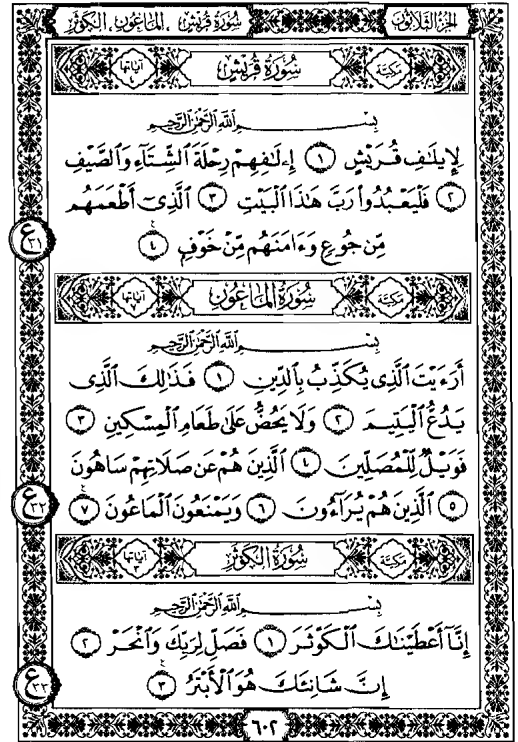 الجزء الثلاثون سورة قريش ، الماعون ، الكوثر
مكية سُورَةُ قُرَيْشٍ آياتها ٤
بِسْمِ اللَّهِ الرَّحْمَٰنِ الرَّحِيمِ
لِإِيلَٰفِ قُرَيْشٍ ١ إِۦلَٰفِهِمْ رِحْلَةَ ٱلشِّتَآءِ وَٱلصَّيْفِ
٢ فَلْيَعْبُدُوا۟ رَبَّ هَٰذَا ٱلْبَيْتِ ٣ ٱلَّذِىٓ أَطْعَمَهُم
مِّن جُوعٍ وَءَامَنَهُم مِّنْ خَوْفٍۭ ٤
ع ٣١
مكية سُورَةُ المَاعُونِ آياتها ٧
بِسْمِ اللَّهِ الرَّحْمَٰنِ الرَّحِيمِ
أَرَءَيْتَ ٱلَّذِى يُكَذِّبُ بِٱلدِّينِ ١ فَذَٰلِكَ ٱلَّذِى
يَدُعُّ ٱلْيَتِيمَ ٢ وَلَا يَحُضُّ عَلَىٰ طَعَامِ ٱلْمِسْكِينِ ٣
فَوَيْلٌ لِّلْمُصَلِّينَ ٤ ٱلَّذِينَ هُمْ عَن صَلَاتِهِمْ سَاهُونَ
٥ ٱلَّذِينَ هُمْ يُرَآءُونَ ٦ وَيَمْنَعُونَ ٱلْمَاعُونَ ٧
ع ٣٢
مكية سُورَةُ الكَوْثَرِ آياتها ٣
بِسْمِ اللَّهِ الرَّحْمَٰنِ الرَّحِيمِ
إِنَّآ أَعْطَيْنَٰكَ ٱلْكَوْثَرَ ١ فَصَلِّ لِرَبِّكَ وَٱنْحَرْ ٢
إِنَّ شَانِئَكَ هُوَ ٱلْأَبْتَرُ ٣
ع ٣٣
٦٠٢